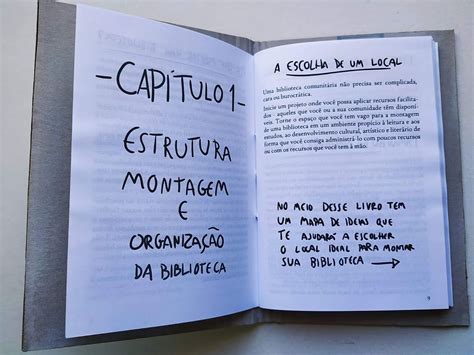 - CAPÍTULO 1 -
ESTRUTURA
MONTAGEM
E
ORGANIZAÇÃO
DA BIBLIOTECA
A ESCOLHA DE UM LOCAL
Uma biblioteca comunitária não precisa ser complicada,
cara ou burocrática.
Inicie um projeto onde você possa aplicar recursos facilita-
dos - aqueles que você ou a sua comunidade têm disponí-
veis. Torne o espaço que você tem vago para a montagem
de uma biblioteca em um ambiente propício à leitura e aos
estudos, ao desenvolvimento cultural, artístico e literário de
forma que você consiga administrá-lo com poucos recursos
ou com os recursos que você tem à mão.
NO MEIO DESSE LIVRO TEM
UM MAPA DE IDEIAS QUE
TE AJUDARÁ A ESCOLHER
O LOCAL IDEAL PARA MONTAR
SUA BIBLIOTECA →
9